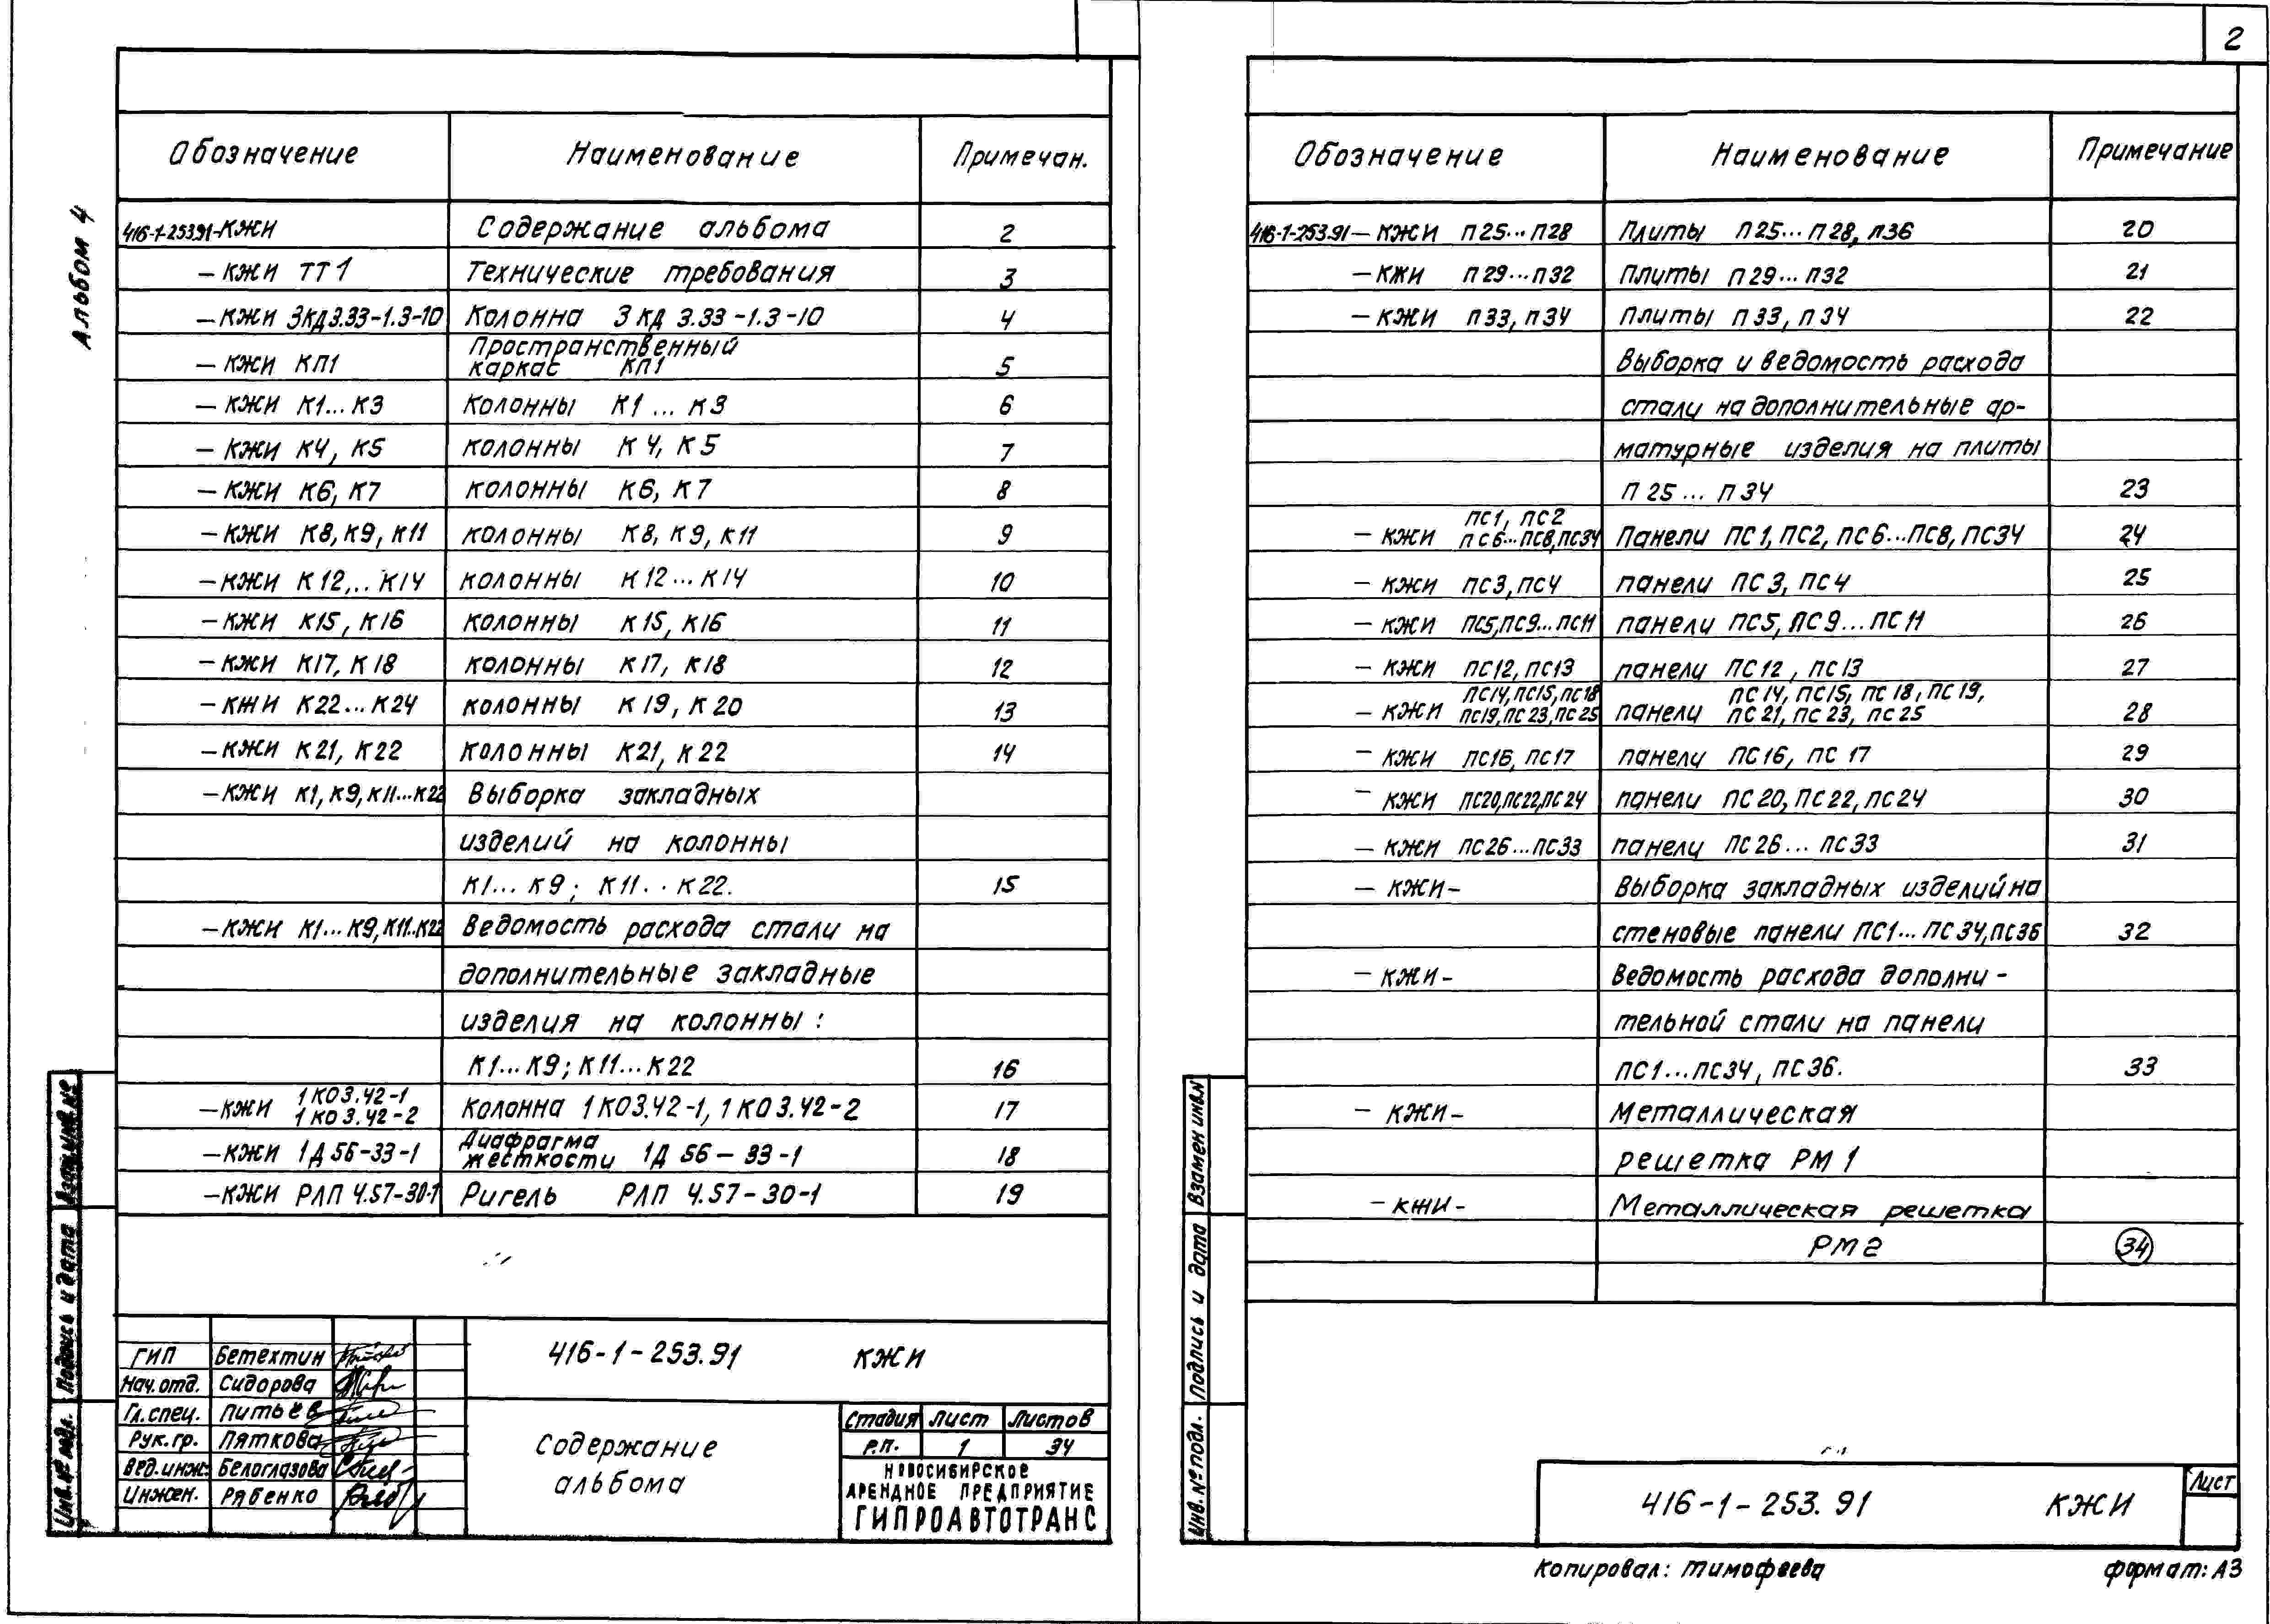 2
Альбом 4
Обозначение Наименование Примечан.
416-1-253.91-КЖИ Содержание альбома 2
-КЖИ ТТ1 Технические требования 3
-КЖИ 3КД3.33-1.3-10 Колонна 3КД 3.33-1.3-10 4
Пространственный
-КЖИ КП1 каркас КП1 5
-КЖИ К1...К3 Колонны К1...К3 6
-КЖИ К4, К5 колонны К4, К5 7
-КЖИ К6, К7 колонны К6, К7 8
-КЖИ К8, К9, К11 колонны К8, К9, К11 9
-КЖИ К12,..К14 колонны К12...К14 10
-КЖИ К15, К16 колонны К15, К16 11
-КЖИ К17, К18 колонны К17, К18 12
-КЖИ К22...К24 колонны К19, К20 13
-КЖИ К21, К22 колонны К21, К22 14
-КЖИ К1, К9, К11...К22 Выборка закладных
изделий на колонны
К1...К9; К11..К22. 15
-КЖИ К1...К9, К11..К22 Ведомость расхода стали на
дополнительные закладные
изделия на колонны:
К1...К9; К11...К22 16
1КО3.42-1
-КЖИ 1КО3.42-2 Колонна 1КО3.42-1, 1КО3.42-2 17
Диафрагма
-КЖИ 1Д56-33-1 жесткости 1Д56-33-1 18
-КЖИ РЛП 4.57-30-1 Ригель РЛП 4.57-30-1 19
Взам.инв.№
Подпись и дата
Инв.№ подл.
ГИП Бетехтин
Нач.отд. Сидорова
Гл.спец. Питьев
Рук.гр. Пяткова
Вед.инж. Белоглазова
Инжен. Рябенко
416-1-253.91 КЖИ
Содержание
альбома
Стадия Лист Листов
Р.П. 1 34
НОВОСИБИРСКОЕ
АРЕНДНОЕ ПРЕДПРИЯТИЕ
ГИПРОАВТОТРАНС
Обозначение Наименование Примечание
416-1-253.91-КЖИ П25...П28 Плиты П25...П28, П36 20
-КЖИ П29...П32 Плиты П29...П32 21
-КЖИ П33, П34 Плиты П33, П34 22
Выборка и ведомость расхода
стали на дополнительные ар-
матурные изделия на плиты
П25...П34 23
ПС1, ПС2
-КЖИ ПС6...ПС8, ПС34 Панели ПС1, ПС2, ПС6...ПС8, ПС34 24
-КЖИ ПС3, ПС4 панели ПС3, ПС4 25
-КЖИ ПС5, ПС9...ПС11 панели ПС5, ПС9...ПС11 26
-КЖИ ПС12, ПС13 панели ПС12, ПС13 27
ПС14, ПС15, ПС18 ПС14, ПС15, ПС18, ПС19,
-КЖИ ПС19, ПС23, ПС25 панели ПС21, ПС23, ПС25 28
-КЖИ ПС16, ПС17 панели ПС16, ПС17 29
-КЖИ ПС20, ПС22, ПС24 панели ПС20, ПС22, ПС24 30
-КЖИ ПС26...ПС33 панели ПС26...ПС33 31
-КЖИ- Выборка закладных изделий на
стеновые панели ПС1...ПС34, ПС36 32
-КЖИ- Ведомость расхода дополни-
тельной стали на панели
ПС1...ПС34, ПС36. 33
-КЖИ- Металлическая
решетка РМ1
-КЖИ- Металлическая решетка
РМ2 34
Взамен инв.№
Подпись и дата
Инв.№ подл.
416-1-253.91 КЖИ
Лист
Копировал: Тимофеева Формат: А3